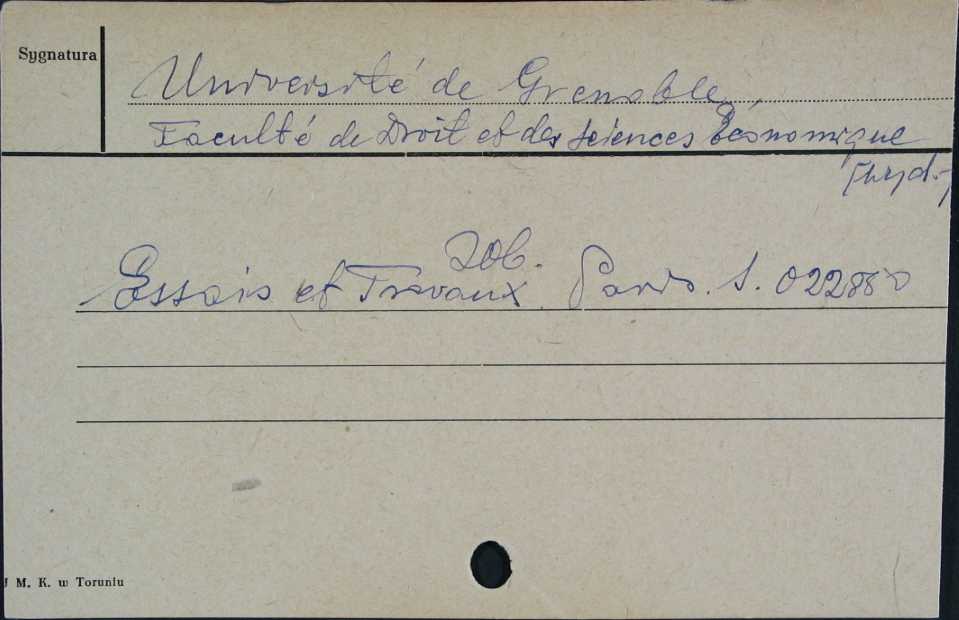 Sygnatura
Université de Grenoble,
Faculté de Droit et des sciences Économique
[wyd.]
zob.
Essais et Travaux. Paris. S. 02288
U M. K. w Toruniu